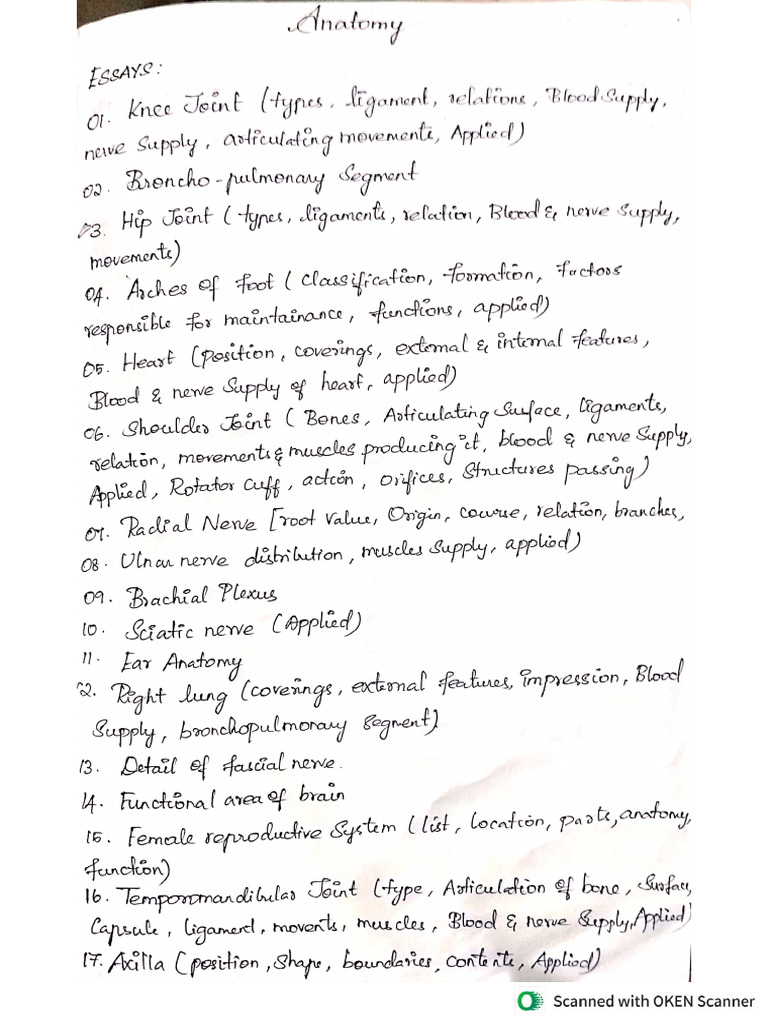 Anatomy
ESSAYS:
01. Knee Joint (types, ligament, relations, Blood Supply,
nerve Supply, articulating movements, Applied)
02. Broncho-pulmonary Segment
03. Hip Joint (types, ligaments, relation, Blood & nerve Supply,
movements)
04. Arches of foot (classification, formation, factors
responsible for maintainance, functions, applied)
05. Heart (position, coverings, external & internal features,
Blood & nerve Supply of heart, applied)
06. Shoulder Joint (Bones, Articulating Surface, ligaments,
relation, movements & muscles producing it, blood & nerve Supply,
Applied, Rotator cuff, action, orifices, Structures passing)
07. Radial Nerve [root value, Origin, course, relation, branches,
08. Ulnar nerve distribution, muscles supply, applied)
09. Brachial Plexus
10. Sciatic nerve (Applied)
11. Ear Anatomy
12. Right lung (coverings, external features, impression, Blood
Supply, bronchopulmonary segment)
13. Detail of fascial nerve.
14. Functional area of brain
15. Female reproductive System (list, location, parts, anatomy,
function)
16. Temporomandibular Joint (type, Articulation of bone, Surface,
Capsule, ligament, movents, muscles, Blood & nerve Supply, Applied)
17. Axilla (position, Shape, boundaries, contents, Applied)
Scanned with OKEN Scanner